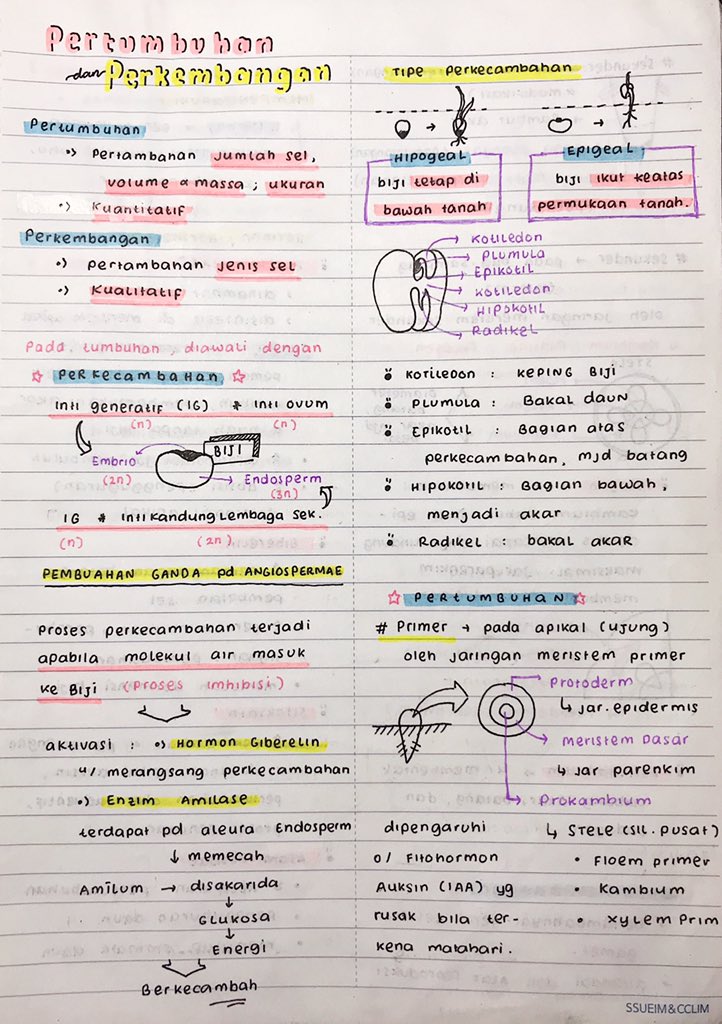 Pertumbuhan
dan Perkembangan
Pertumbuhan
•) Pertambahan jumlah sel,
volume & massa ; ukuran
•) Kuantitatif
Perkembangan
•) Pertambahan jenis sel
•) Kualitatif
Pada tumbuhan, diawali dengan
☆ PERKECAMBAHAN ☆
Inti generatif (IG) * Inti ovum
(n) (n)
BIJI
Embrio
(2n)
Endosperm
(3n)
IG * Inti Kandung Lembaga Sek.
(n) (2n)
PEMBUAHAN GANDA pd ANGIOSPERMAE
Proses perkecambahan terjadi
apabila molekul air masuk
ke Biji (Proses Imhibisi)
aktivasi : •) Hormon Giberelin
u/ merangsang perkecambahan
•) Enzim Amilase
terdapat pd aleura Endosperm
↓ memecah
Amilum → disakarida
↓
Glukosa
↓
Energi
Berkecambah
TIPE PERKECAMBAHAN
HIPOGEAL
biji tetap di
bawah tanah
EPIGEAL
biji ikut keatas
permukaan tanah.
Kotiledon
Plumula
Epikotil
Kotiledon
Hipokotil
Radikel
KOTILEDON : KEPING BIJI
PLUMULA : Bakal daun
EPIKOTIL : Bagian atas
perkecambahan, mjd batang
HIPOKOTIL : Bagian bawah,
menjadi akar
Radikel : bakal akar
☆ PERTUMBUHAN ☆
# Primer → pada apikal (ujung)
oleh jaringan meristem primer
Protoderm
↳ jar. epidermis
Meristem Dasar
↳ jar parenkim
Prokambium
↳ STELE (SIL. pusat)
• Floem primer
• Kambium
• xylem Prim
dipengaruhi
o/ Fitohormon
Auksin (IAA) yg
rusak bila ter-
kena matahari.
SSUEIM&CCLIM